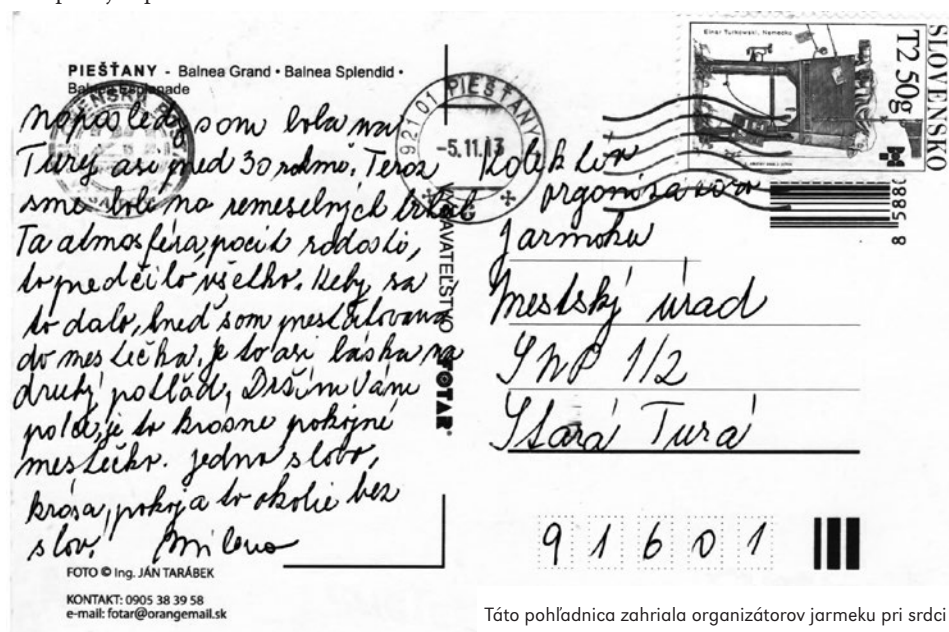 PIEŠŤANY - Balnea Grand • Balnea Splendid •
Balnea Esplanade
Naposledy som bola na
Turej asi pred 30 rokmi. Teraz
sme boli na remeselných trhoch
Ta atmosféra, pocit radosti,
to predčilo všetko. Keby sa
to dalo, hneď som presťahovaná
do mestečka. Je to asi láska na
druhý pohľad, Držím Vám
palce, je to krásne pokojné
mestečko. Jedno slovo,
krása, pokoj a to okolie bez
slov! Milena
FOTO © Ing. JÁN TARÁBEK
KONTAKT: 0905 38 39 58
e-mail: fotar@orangemail.sk
VYDAVATEĽSTVO FOTAR®
921 01 PIEŠŤANY
-5.11.13
Einar Turkowski, Nemecko
SLOVENSKO
T2 50g
Kolektív
organizátorov
Jarmoku
Mestský úrad
SNP 1/2
Stará Turá
91601
Táto pohľadnica zahriala organizátorov jarmeku pri srdci